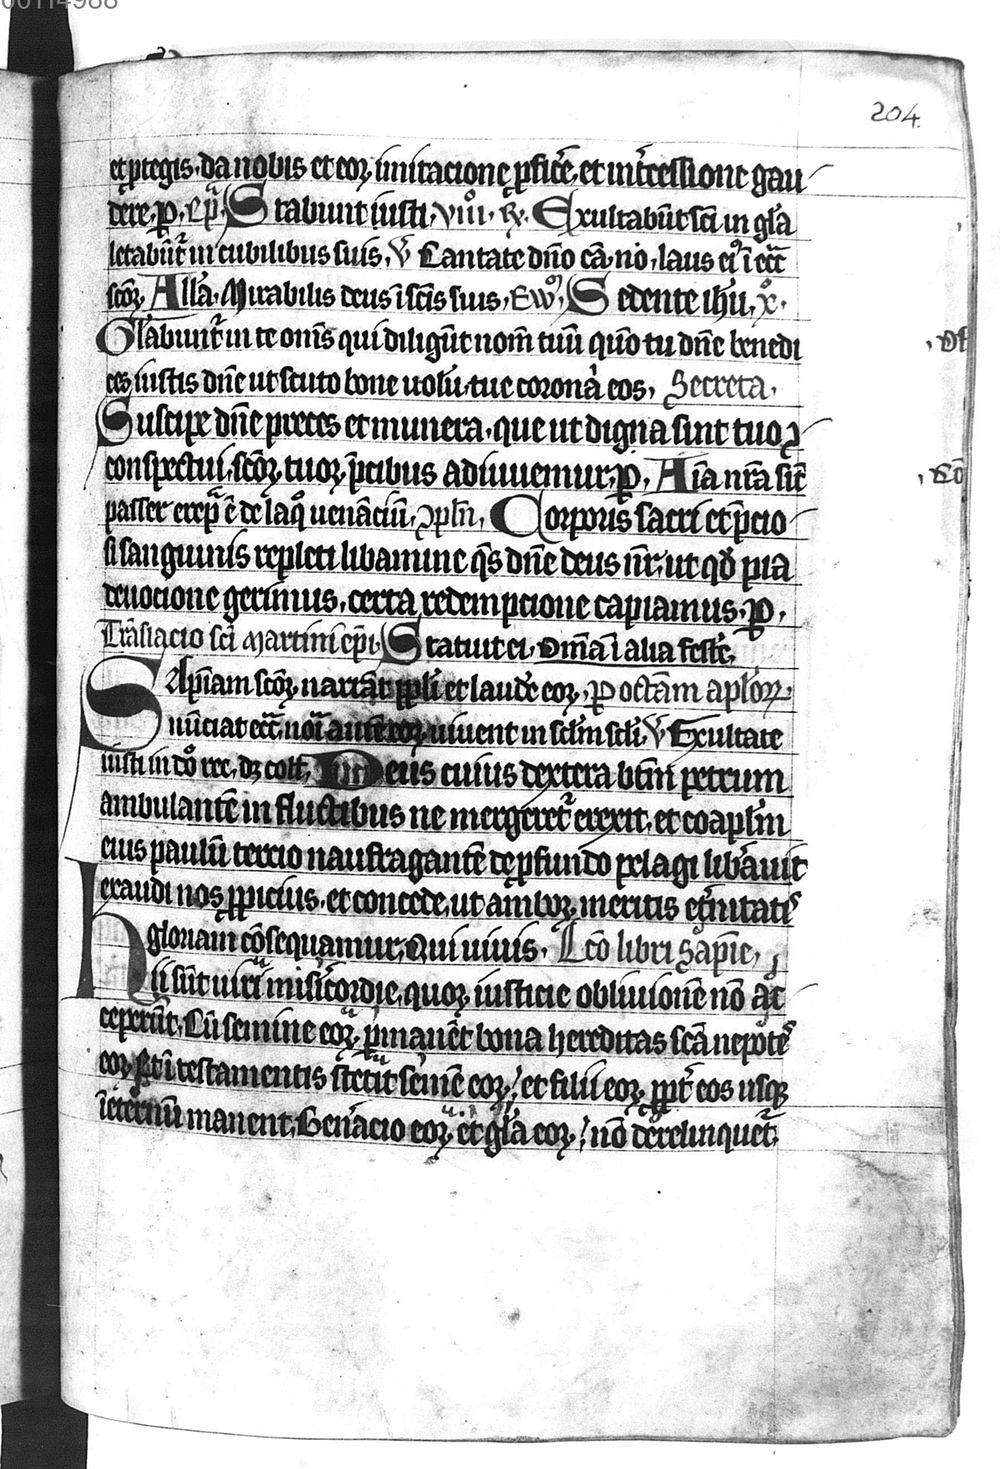 00114988
204.
et ꝓtegis. da nobis et eoꝝ imitacione ꝓficẽ. et int̾cessione gau
dere. ꝑ. Ep̃. Stabunt iusti. viiͦi. ꝶ. Exultabũt sci in gl̃a
letabũt̃ in cubilibus suis. v̾ Cantate dño cã. no. laus eiꝰ ĩ ecc̃
scõꝝ. All̃a. Mirabilis deus ĩ scĩs suis. Ewͦ. Sedente ih̃u. xͦ.
Gl̃abunt̃ in te om̃s qui diligũt nom̃ tuũ. qm̃o tu dñe benedi
ces iustis dñe ut scuto bone uolũ. tue coronã eos. Secreta.
Suscipe dñe preces et munera. que ut digna sint tuo
conspectui. scõꝝ tuoꝝ p̃cibus adiuuemur. ꝑ. Aĩa nr̃a sic̃
passer erep̃ ẽ de laq̊ uenãciũ. ꝯpl̃n. Corporis sacri et p̃cio
si sanguinis repleti libamine q̃s dñe deus nr̃. ut qđ pia
deuocione gerimus. certa redempcione capiamus. ꝑ.
Trãslacio sc̃i Martini ep̃i. Statuit ei. Om̃ia ĩ alia feste.
Sapĩam scõꝝ narrãt ꝓpl̃i et laudẽ eoꝝ. ꝑ octam apl̃oꝝ.
nũciat ecc̃. noĩa autẽ eoꝝ uiuent in scl̃m scl̃i. v̾ Exultate
iusti in dͦo rec. dꝫ coll. Deus cuius dextera btm̃ petrum
ambulantẽ in fluctibus ne mergeret̃ erexit. et coapl̃m
eius paulũ tercio naufragantẽ de ꝓfundo pelagi lib̾auit
exaudi nos ꝓpicius. et concede. ut amboꝝ meritis et̾nitatis
gloriam cõsequamur. Qui uiuis. Lc̃o libri sapiẽ.
Hii sũt uiri misẽicordie. quoꝝ iusticie obliuionẽ nõ ac
ceperũt. Cũ semine eoꝝ ꝑmanẽt bona hereditas scã nepotes
eoꝝ. Et ĩ testamentis stetit semẽ eoꝝ. et filii eoꝝ ꝓpt̃ eos usqꝫ
ĩ et̾num manent. Gen̾acio eoꝝ et gl̃a eoꝝ. nõ derelinquet̃.